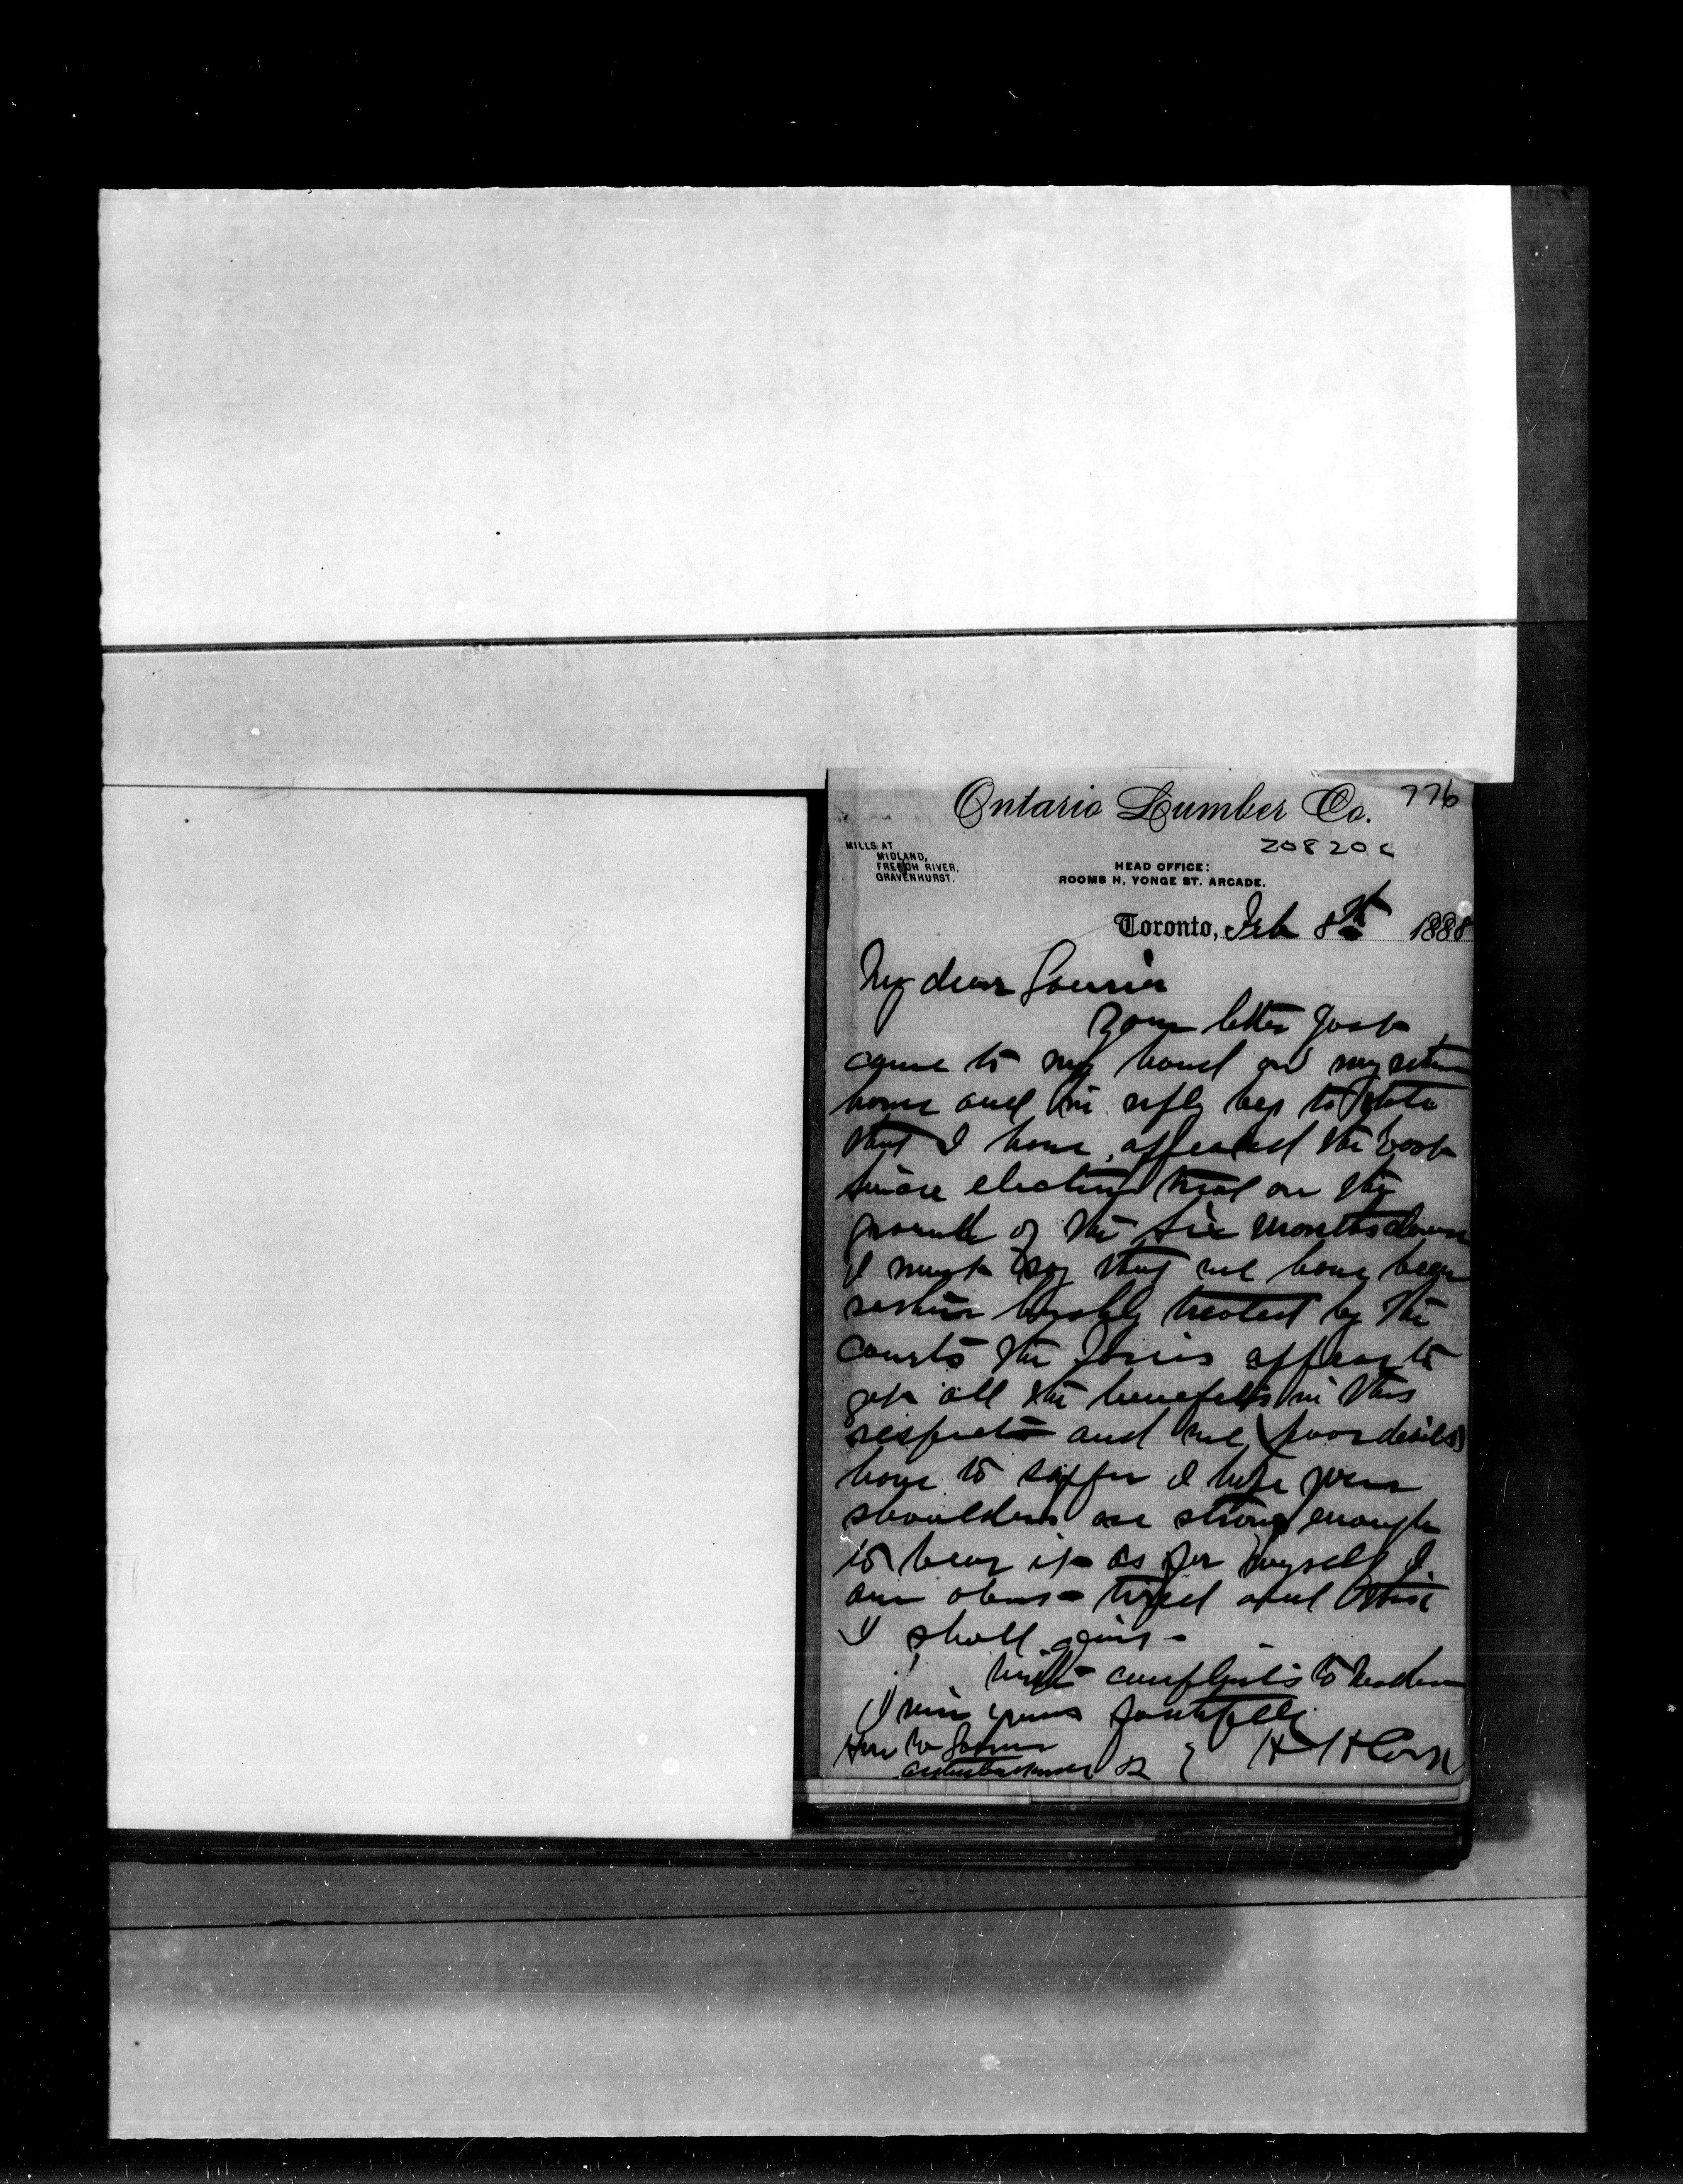 776
Ontario Lumber Co.
20820c
MILLS AT
MIDLAND,
FRENCH RIVER,
GRAVENHURST.
HEAD OFFICE:
ROOMS H, YONGE ST. ARCADE.
Toronto, Feb 8th 1888
My dear Laurier
Your letter just
came to my hand on my return
home and in reply beg to state
that I have appealed the East
Simcoe election trial on the
grounds of the six months clause
I must say that we have been
rather harshly treated by the
courts the Tories appear to
get all the benefits in this
respect and we (poor devils)
have to suffer I hope your
shoulders are strong enough
to bear it as for myself I
am almost tired and think
I shall
With compliments to Madam
I remain yours faithfully
Hon W Laurier
Arthabaskaville Q
H H Cook